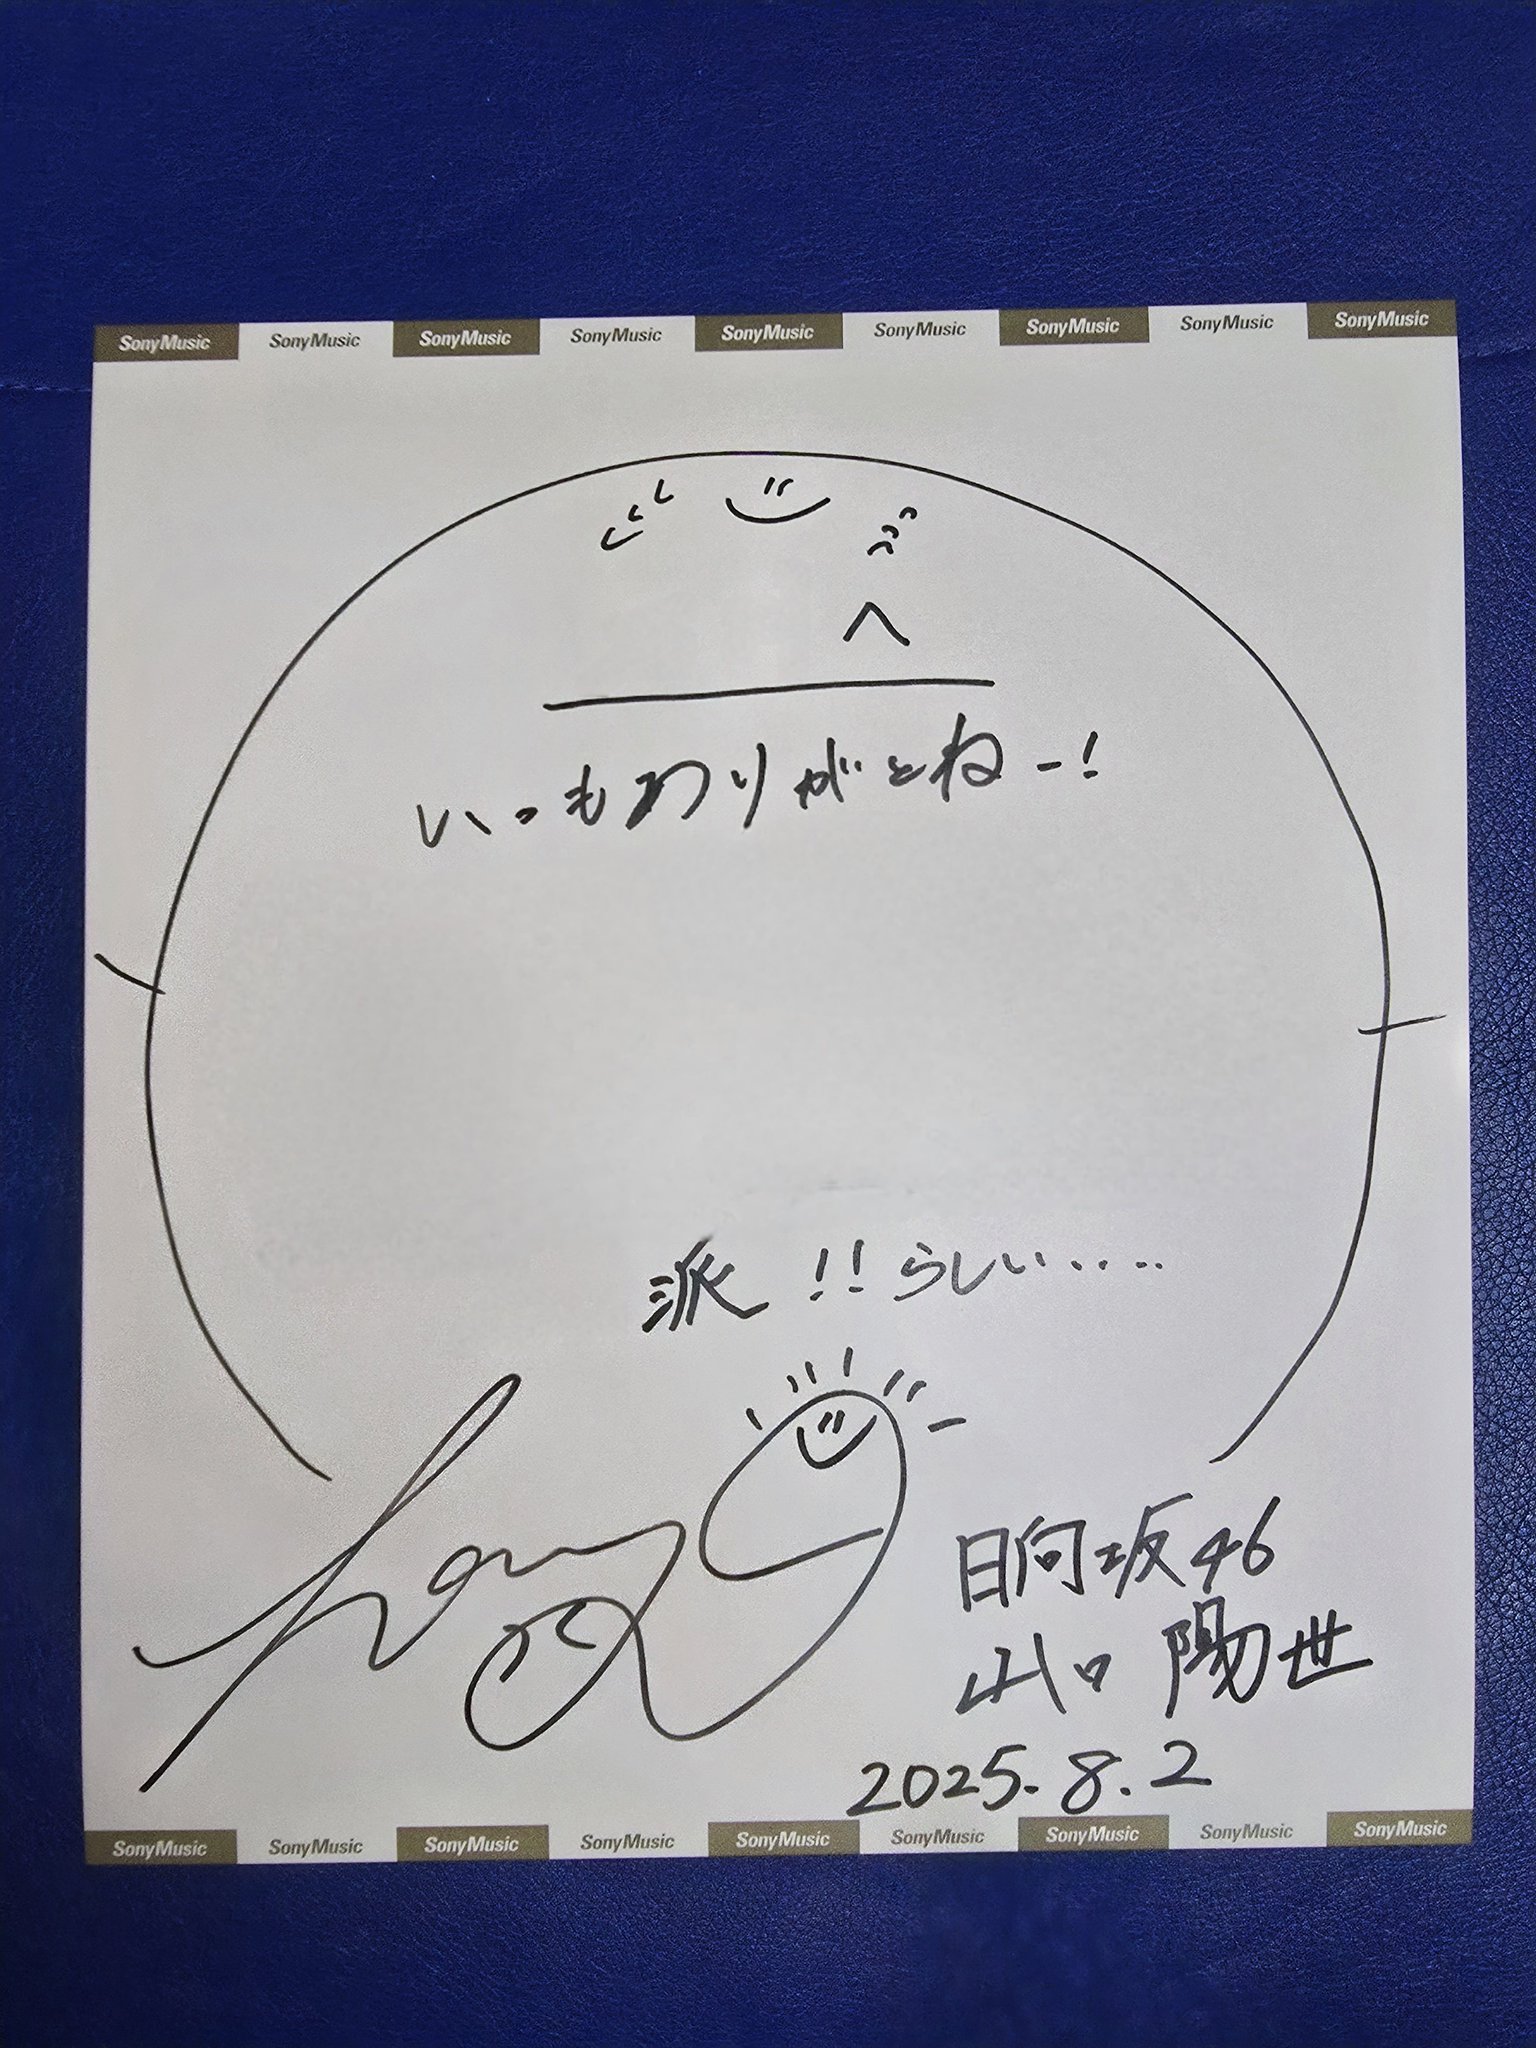 SonyMusic SonyMusic SonyMusic SonyMusic SonyMusic SonyMusic SonyMusic SonyMusic SonyMusic
へ
いつもありがとねー!
派 !! らしい.....
日向坂46
山口 陽世
2025.8.2
SonyMusic SonyMusic SonyMusic SonyMusic SonyMusic SonyMusic SonyMusic SonyMusic SonyMusic